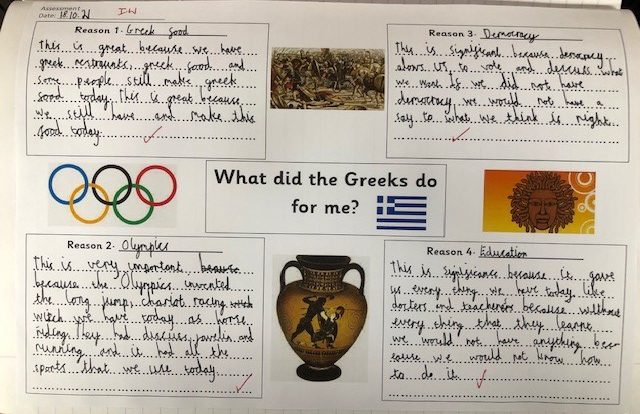 Assessment
Date: 18.10.21
I.W
Reason 1- Greek food
This is great because we have
greek restraunts, greek food and
some people still make greek
food today. This is great because
we still have and make this
food today.
Reason 3- Democracy
This is significant because democracy
alows us to vote and discuss what
we want if we did not have
democracy we would not have a
say to what we think is right.
What did the Greeks do
for me?
Reason 2- Olympics
This is very important because
because the Olympics invented
the long jump, chariot racing which
witch we have today as horse
riding. They had discuss, javelin and
running and it had all the
sports that we use today.
Reason 4- Education
This is significance because it gave
us every thing we have today like
doctors and teachers because without
every thing that they learne
we would not have anything bec-
ease we would not know how
to do it.